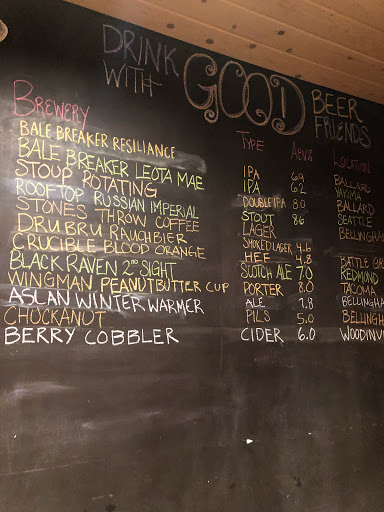 DRINK GOOD BEER
WITH FRIENDS
BREWERY TYPE ABV% LOCATION
BALE BREAKER RESILIANCE IPA 69 BALLARD
BALE BREAKER LEOTA MAE IPA 62 YAKIMA
STOUP ROTATING DOUBLE IPA 80 BALLARD
ROOFTOP RUSSIAN IMPERIAL STOUT 86 SEATTLE
STONES THROW COFFEE LAGER BELLINGHA
DRUBRU RAUCHBIER SMOKED LAGER 4.6
CRUCIBLE BLOOD ORANGE HEF 4.8 BATTLE GR
BLACK RAVEN 2ND SIGHT SCOTCH ALE 70 REDMOND
WINGMAN PEANUTBUTTER CUP PORTER 8.0 TACOMA
ASLAN WINTER WARMER ALE 7.8 BELLINGHA
CHUCKANUT PILS 5.0 BELLINGHA
BERRY COBBLER CIDER 6.0 WOODINV